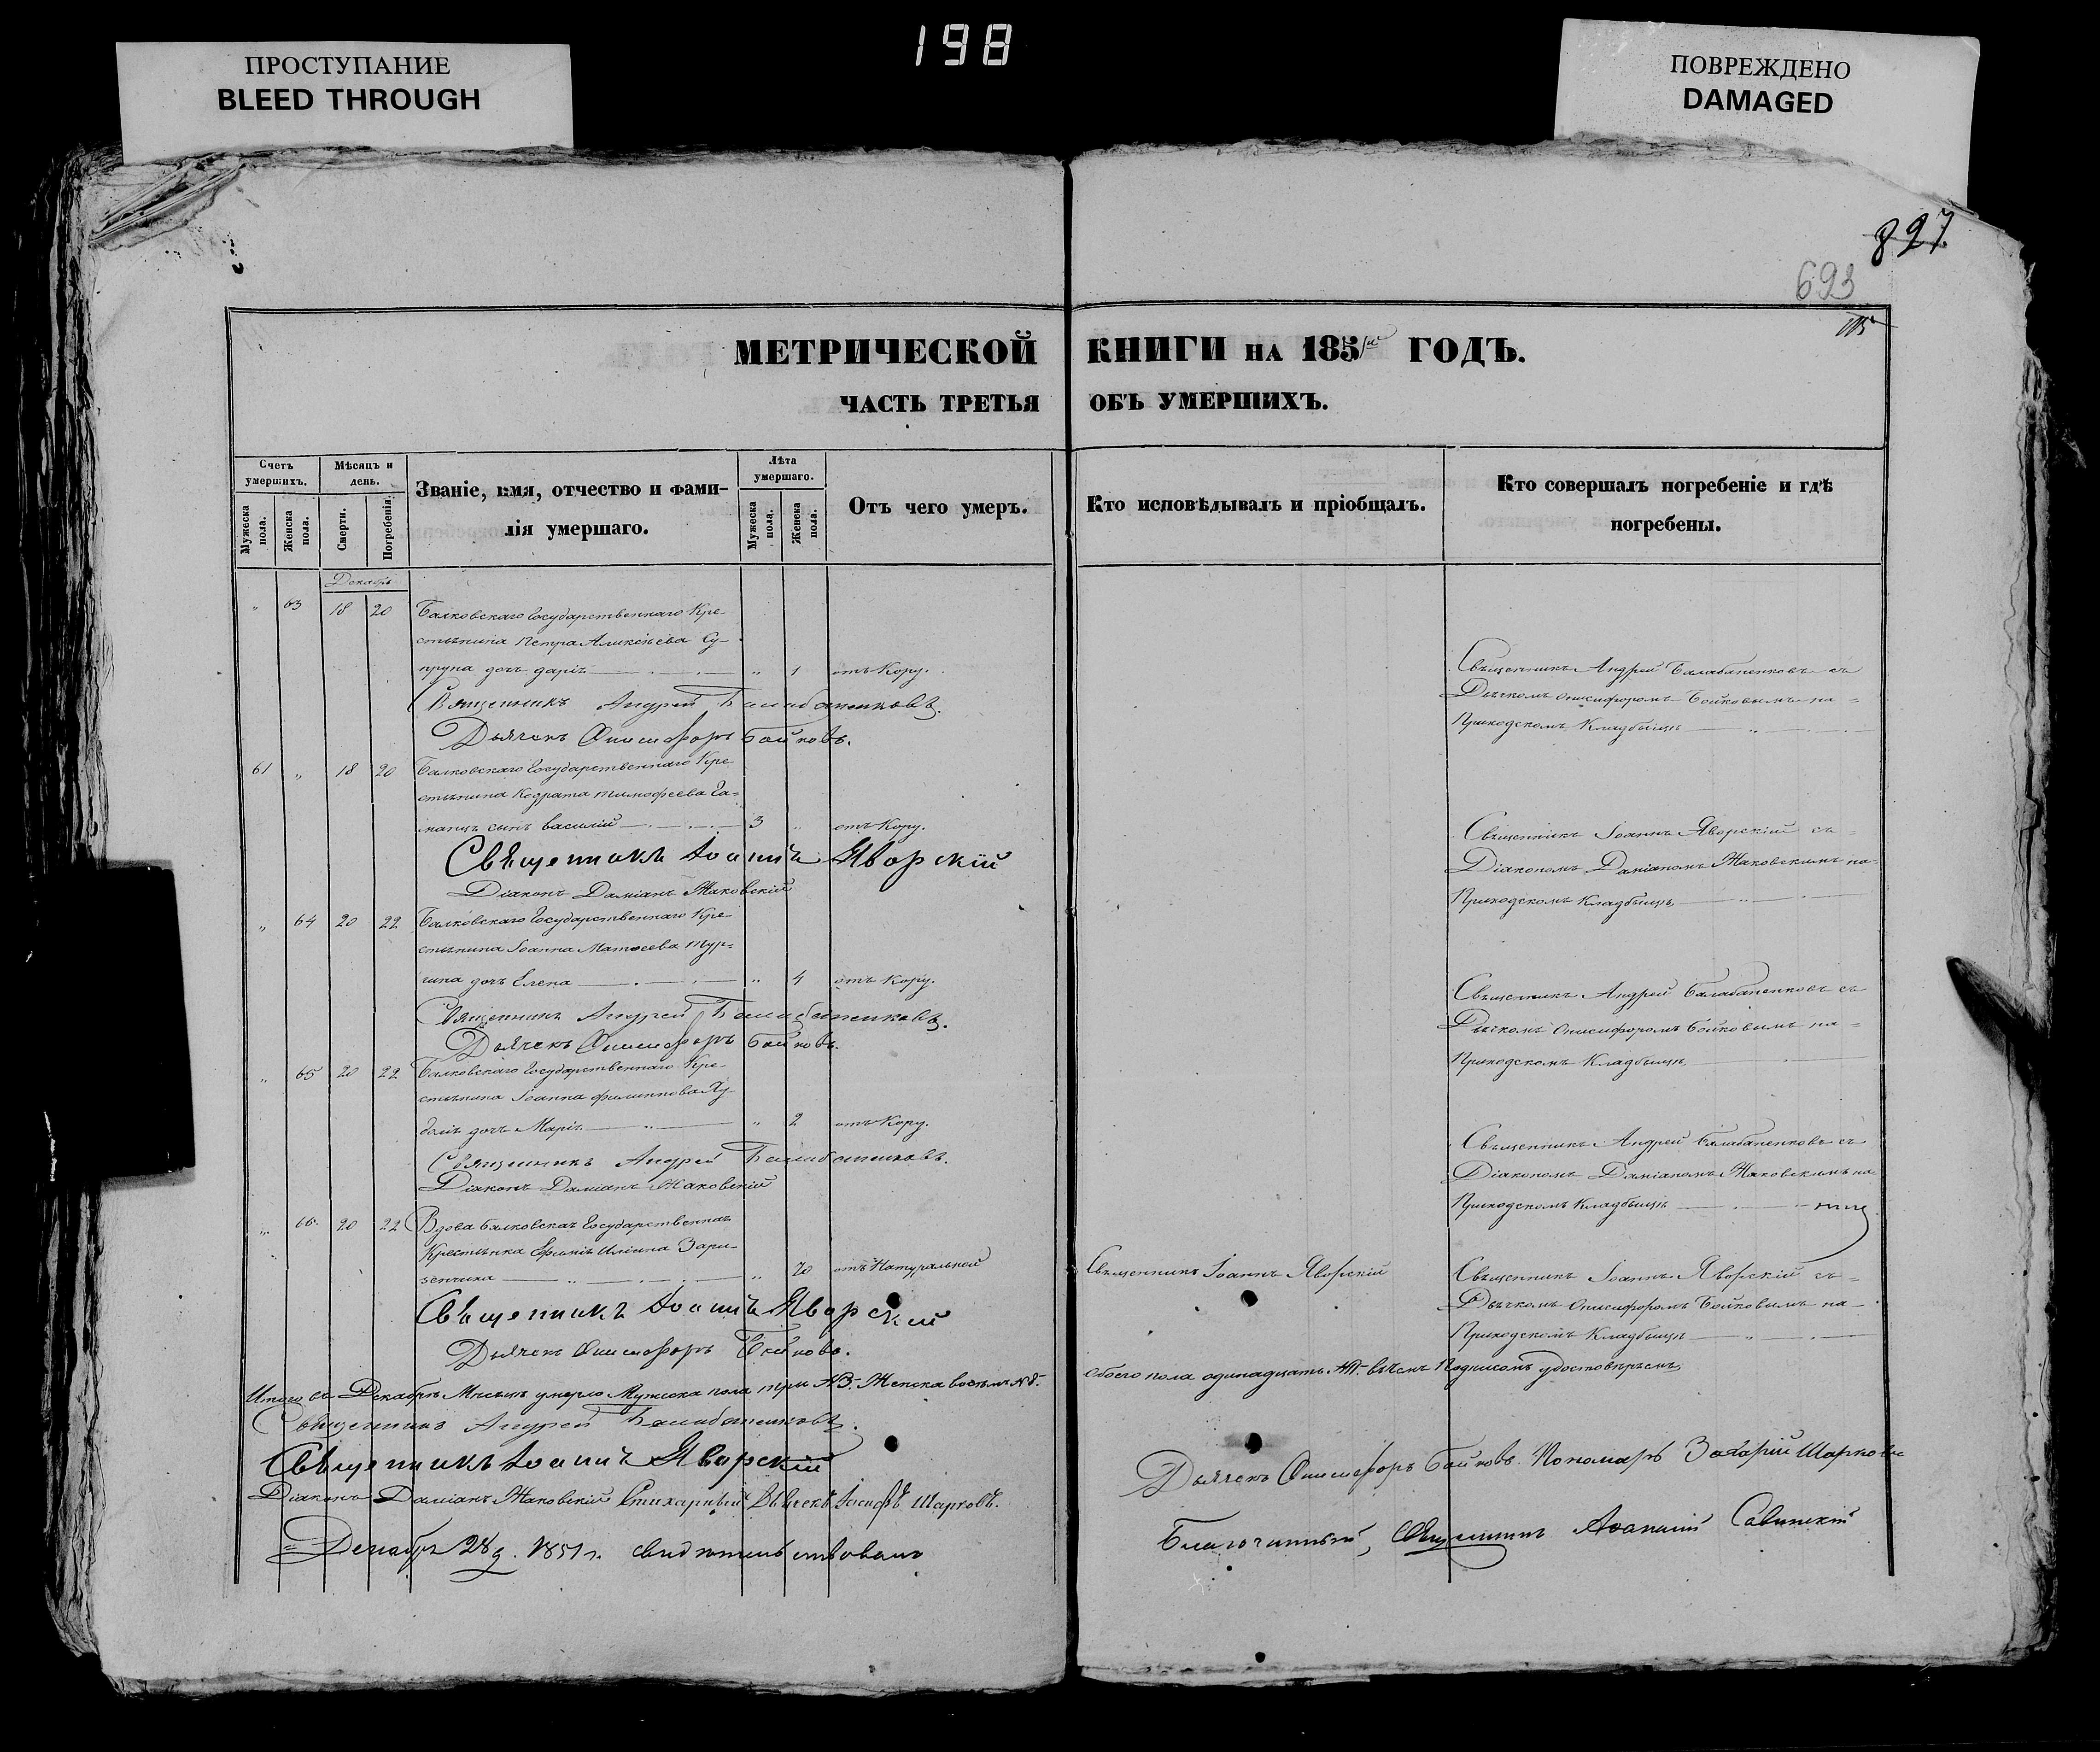 198
ПРОСТУПАНИЕ
BLEED THROUGH
ПОВРЕЖДЕНО
DAMAGED
827
693
115
МЕТРИЧЕСКОЙ КНИГИ НА 1851 ГОДЪ.
ЧАСТЬ ТРЕТЬЯ ОБЪ УМЕРШИХЪ.
Счетъ умершихъ.
Мужеска пола.
Женска пола.
Мѣсяцъ и день.
Смерти.
Погребенія.
Званіе, имя, отчество и фами-
лія умершаго.
Лѣта умершаго.
Мужеска пола.
Женска пола.
Отъ чего умеръ.
Кто исповѣдывалъ и пріобщалъ.
Кто совершалъ погребеніе и гдѣ
погребены.
Декабрь
„ 63 18 20 Балковскаго Государственнаго Кре-
стьянина Петра Алексѣева Су-
пруна дочь Дарія „ 1 отъ Кору.
Священникъ Андрей Балабаненковъ съ
Дьячкомъ Онисифоромъ Бойковымъ на
Приходскомъ Кладбищѣ
Священникъ Андрей Балабаненковъ.
Дьячекъ Онисифоръ Бойковъ.
61 „ 18 20 Балковскаго Государственнаго Кре-
стьянина Кодрата Тимофеева Га-
манца сынъ Василій 3 „ отъ Кору.
Священникъ Іоаннъ Яворскій съ
Діакономъ Даміаномъ Жаковскимъ на
Приходскомъ Кладбищѣ
Священникъ Іоаннъ Яворскій
Діаконъ Даміанъ Жаковскій
„ 64 20 22 Балковскаго Государственнаго Кре-
стьянина Іоанна Матвеева Тур-
чина дочь Елена „ 4 отъ Кору.
Священникъ Андрей Балабаненковъ съ
Дьячкомъ Онисифоромъ Бойковымъ на
Приходскомъ Кладбищѣ
Священникъ Андрей Балабаненковъ.
Дьячекъ Онисифоръ Бойковъ.
„ 65 20 22 Балковскаго Государственнаго Кре-
стьянина Іоанна Филиппова
дочь Марія „ 2 отъ Кору.
Священникъ Андрей Балабаненковъ съ
Діакономъ Даміаномъ Жаковскимъ на
Приходскомъ Кладбищѣ
Священникъ Андрей Балабаненковъ.
Діаконъ Даміанъ Жаковскій
„ 66 20 22 Вдова Балковская Государственная
Крестьянка Ефимія Иліина Зари-
„ 70 отъ Натуральной
Священникъ Іоаннъ Яворскій
Священникъ Іоаннъ Яворскій съ
Дьячкомъ Онисифоромъ Бойковымъ на
Приходскомъ Кладбищѣ
Священникъ Іоаннъ Яворскій
Дьячекъ Онисифоръ Бойковъ.
Итого въ Декабрѣ Мѣсяцѣ умерло Мужска пола три №3. Женска восемь №8. обоего пола одинадцать №11. въ чемъ Подписомъ удостовѣряемъ
Священникъ Андрей Балабаненковъ.
Священникъ Іоаннъ Яворскій
Діаконъ Даміанъ Жаковскій Стихарный Дьячекъ Іосифъ Шарковъ.
Дьячекъ Онисифоръ Бойковъ. Пономарь Захарій Шарковъ
Декабря 28 д. 1851 г. свидѣтельствовалъ
Благочинный, Священникъ Аѳанасій Савинскій